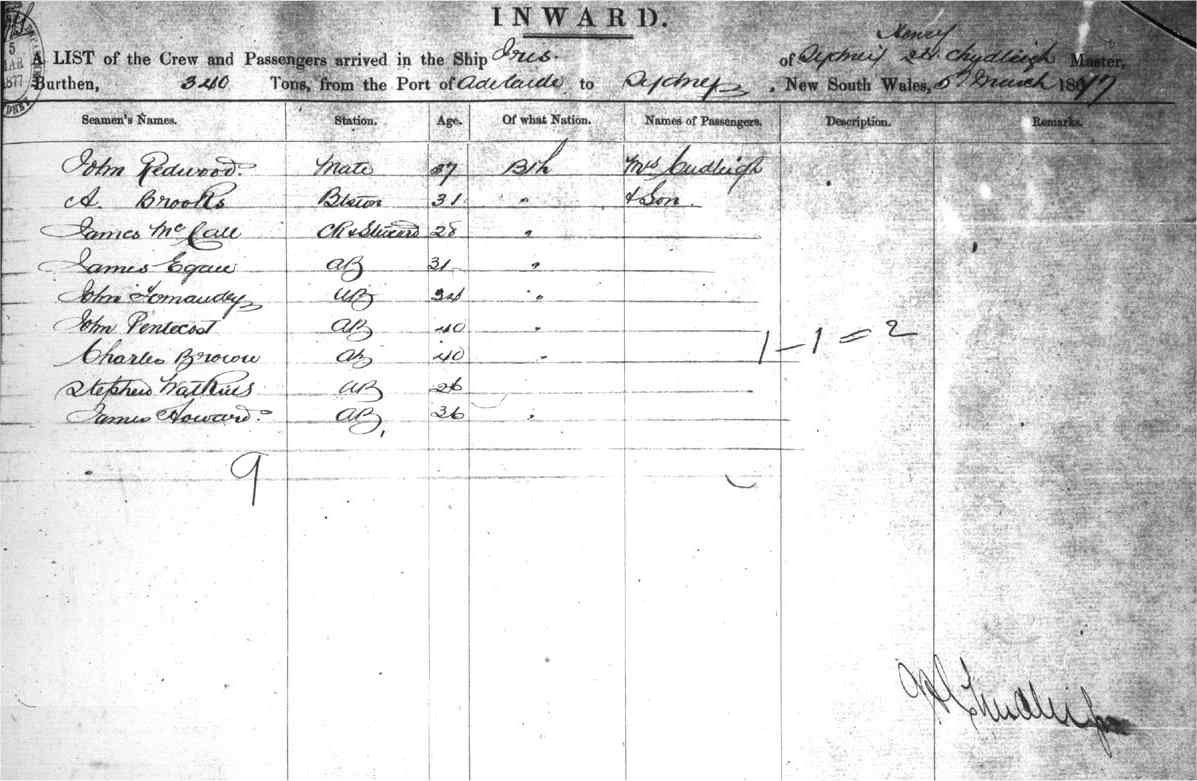 INWARD.
Henry
A LIST of the Crew and Passengers arrived in the Ship Iris. of Sydney Chudleigh Master,
Burthen, 340 Tons, from the Port of Adelaide to Sydney, New South Wales, 5 March 1877
5
1877
Seamen's Names. Station. Age. Of what Nation. Names of Passengers. Description. Remarks.
John Redwood. Mate 37 Bsh Mrs Cudleigh
A. Brooks Bston 31 " & Son.
James McCall Ck & Steward 28 "
James Egan AB 31 "
John AB 34 "
John Pentecost AB 40 "
Charles Brown AB 40 "
1 – 1 = 2
Stephen Watkins AB 26
James Howard AB 36 "
9
H Chudleigh